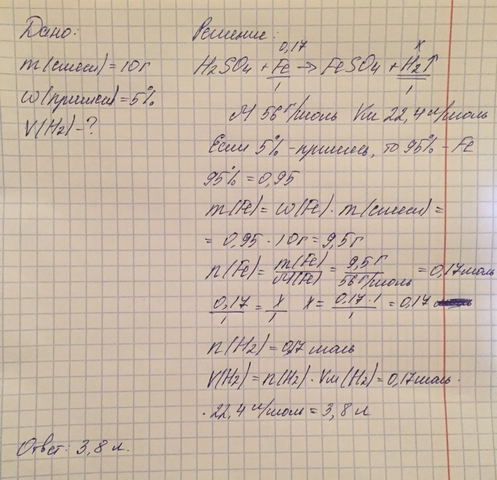 Дано:
m(смеси)=10г
ω(примеси)=5%
V(H2)-?
Решение:
0,17 x
H2SO4 + Fe → FeSO4 + H2↑
1 1
M 56 г/моль Vm 22,4 л/моль
Если 5% - примесь, то 95% - Fe
95% = 0,95
m(Fe) = ω(Fe) · m(смеси) =
= 0,95 · 10г = 9,5г
n(Fe) = m(Fe)/M(Fe) = 9,5г/56г/моль = 0,17моль
0,17/1 = x/1 x = 0,17·1/1 = 0,17
n(H2) = 0,17 моль
V(H2) = n(H2) · Vm(H2) = 0,17моль ·
· 22,4 л/моль = 3,8 л
Ответ: 3,8 л.